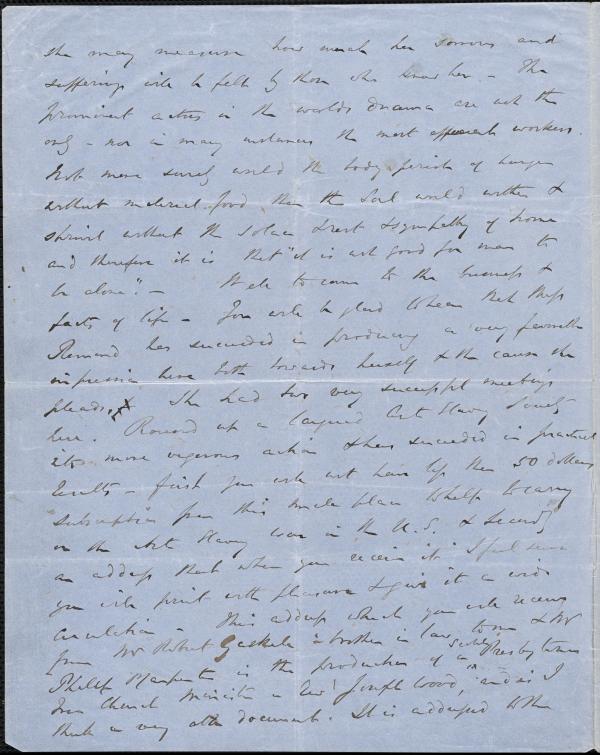 she may measure how much her sorrows and
sufferings will be felt by those who know her. - The
prominent actors in the worlds drama are not the
only - nor in many instances the most workers.
Not more surely would the body perish of hunger
without material food than the Soul would wither &
shrivel without the solace & rest & sympathy of home
and therefore it is that "it is not good for man to
be alone". - to come to the business &
facts of life - You will be glad to hear that Miss
Remond has succeeded in producing a very favorable
impression here both towards herself & the cause she
pleads. She had two very successful meetings
here. Roused up a languid Anti Slavery Society
into more vigorous action & has succeeded in practical
results - first you will not have less than 50 dollars
subscription from this single place to help to carry
on the Anti Slavery cause in the U.S. & secondly
an address that when you receive it I feel sure
you will print with pleasure & give it a wide
circulation - This address which you will receive
from Mr Robert Gaskell a brother in law to me & Mr
Philip is the production of a Presbyterian
Free Church Minister a Revd Joseph Wood, and as I
think a very able document. It is addressed to the